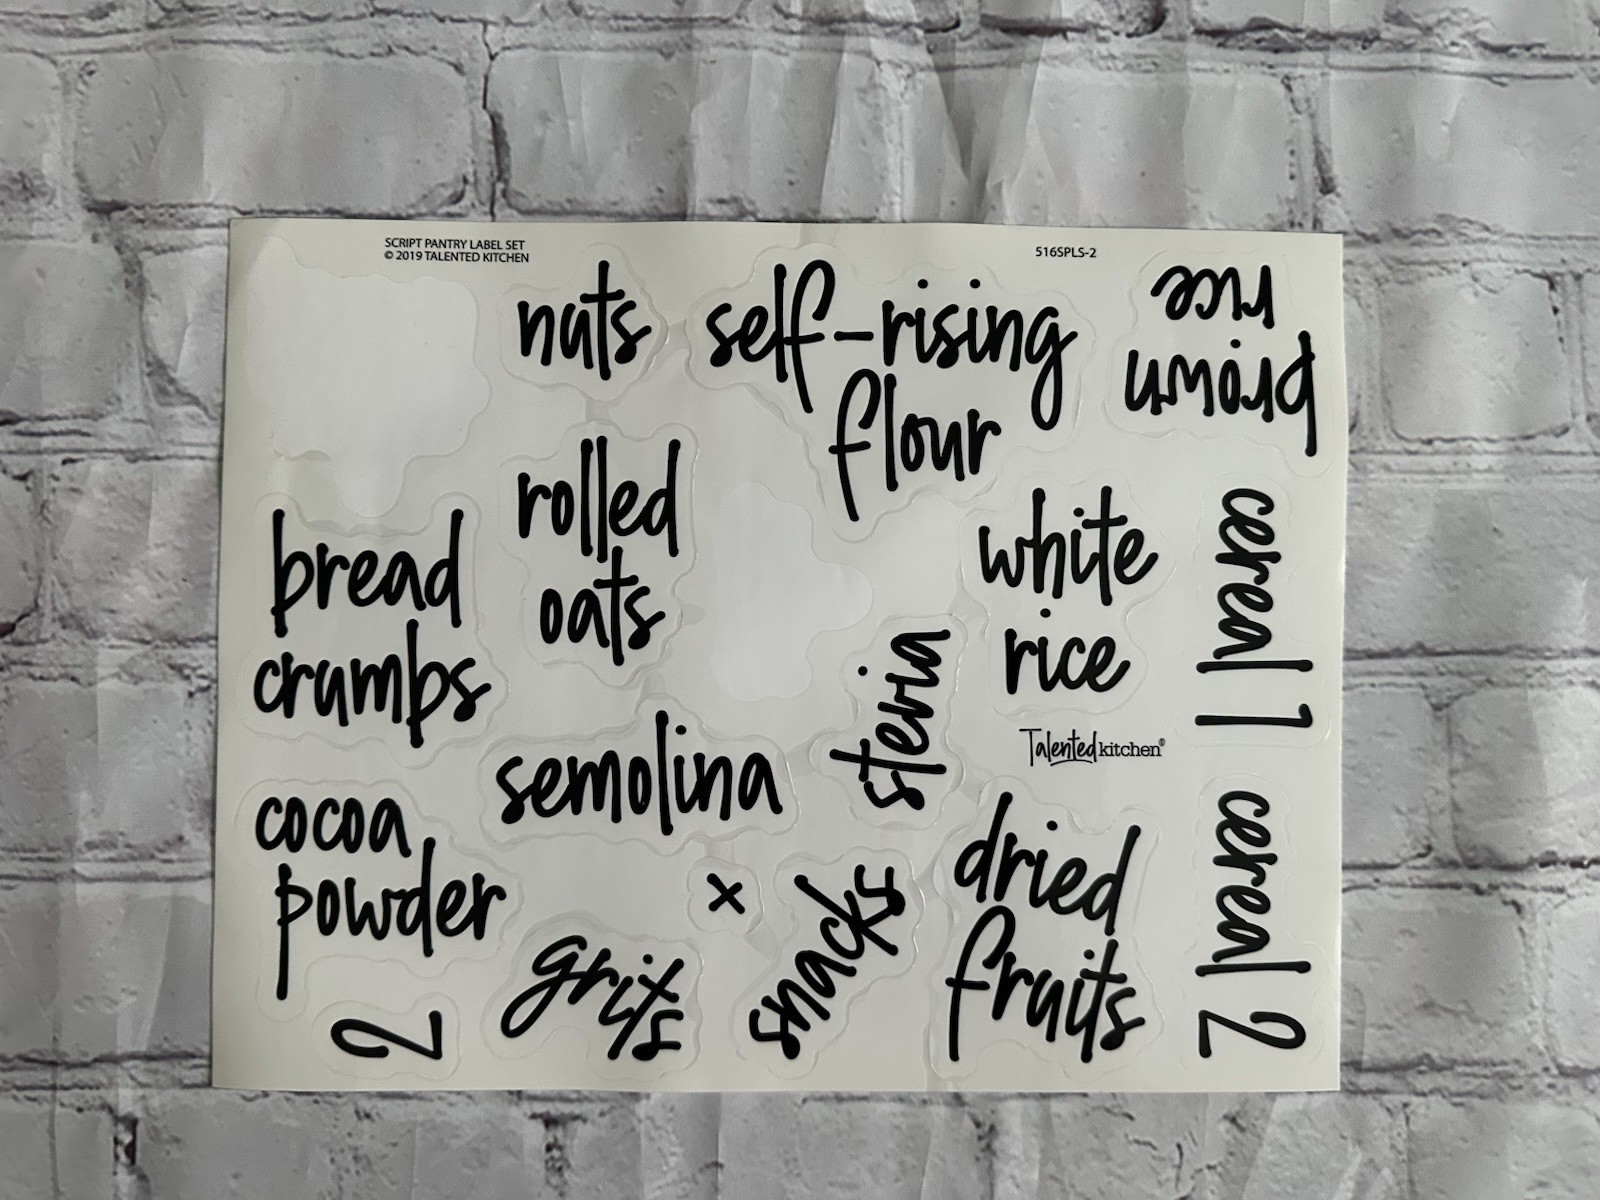 SCRIPT PANTRY LABEL SET
© 2019 TALENTED KITCHEN
516SPLS-2
nuts
self-rising
flour
brown
rice
rolled
oats
white
rice
cereal 1
bread
crumbs
stevia
semolina
Talented kitchen®
cocoa
powder
x
snacks
dried
fruits
cereal 2
grits
2